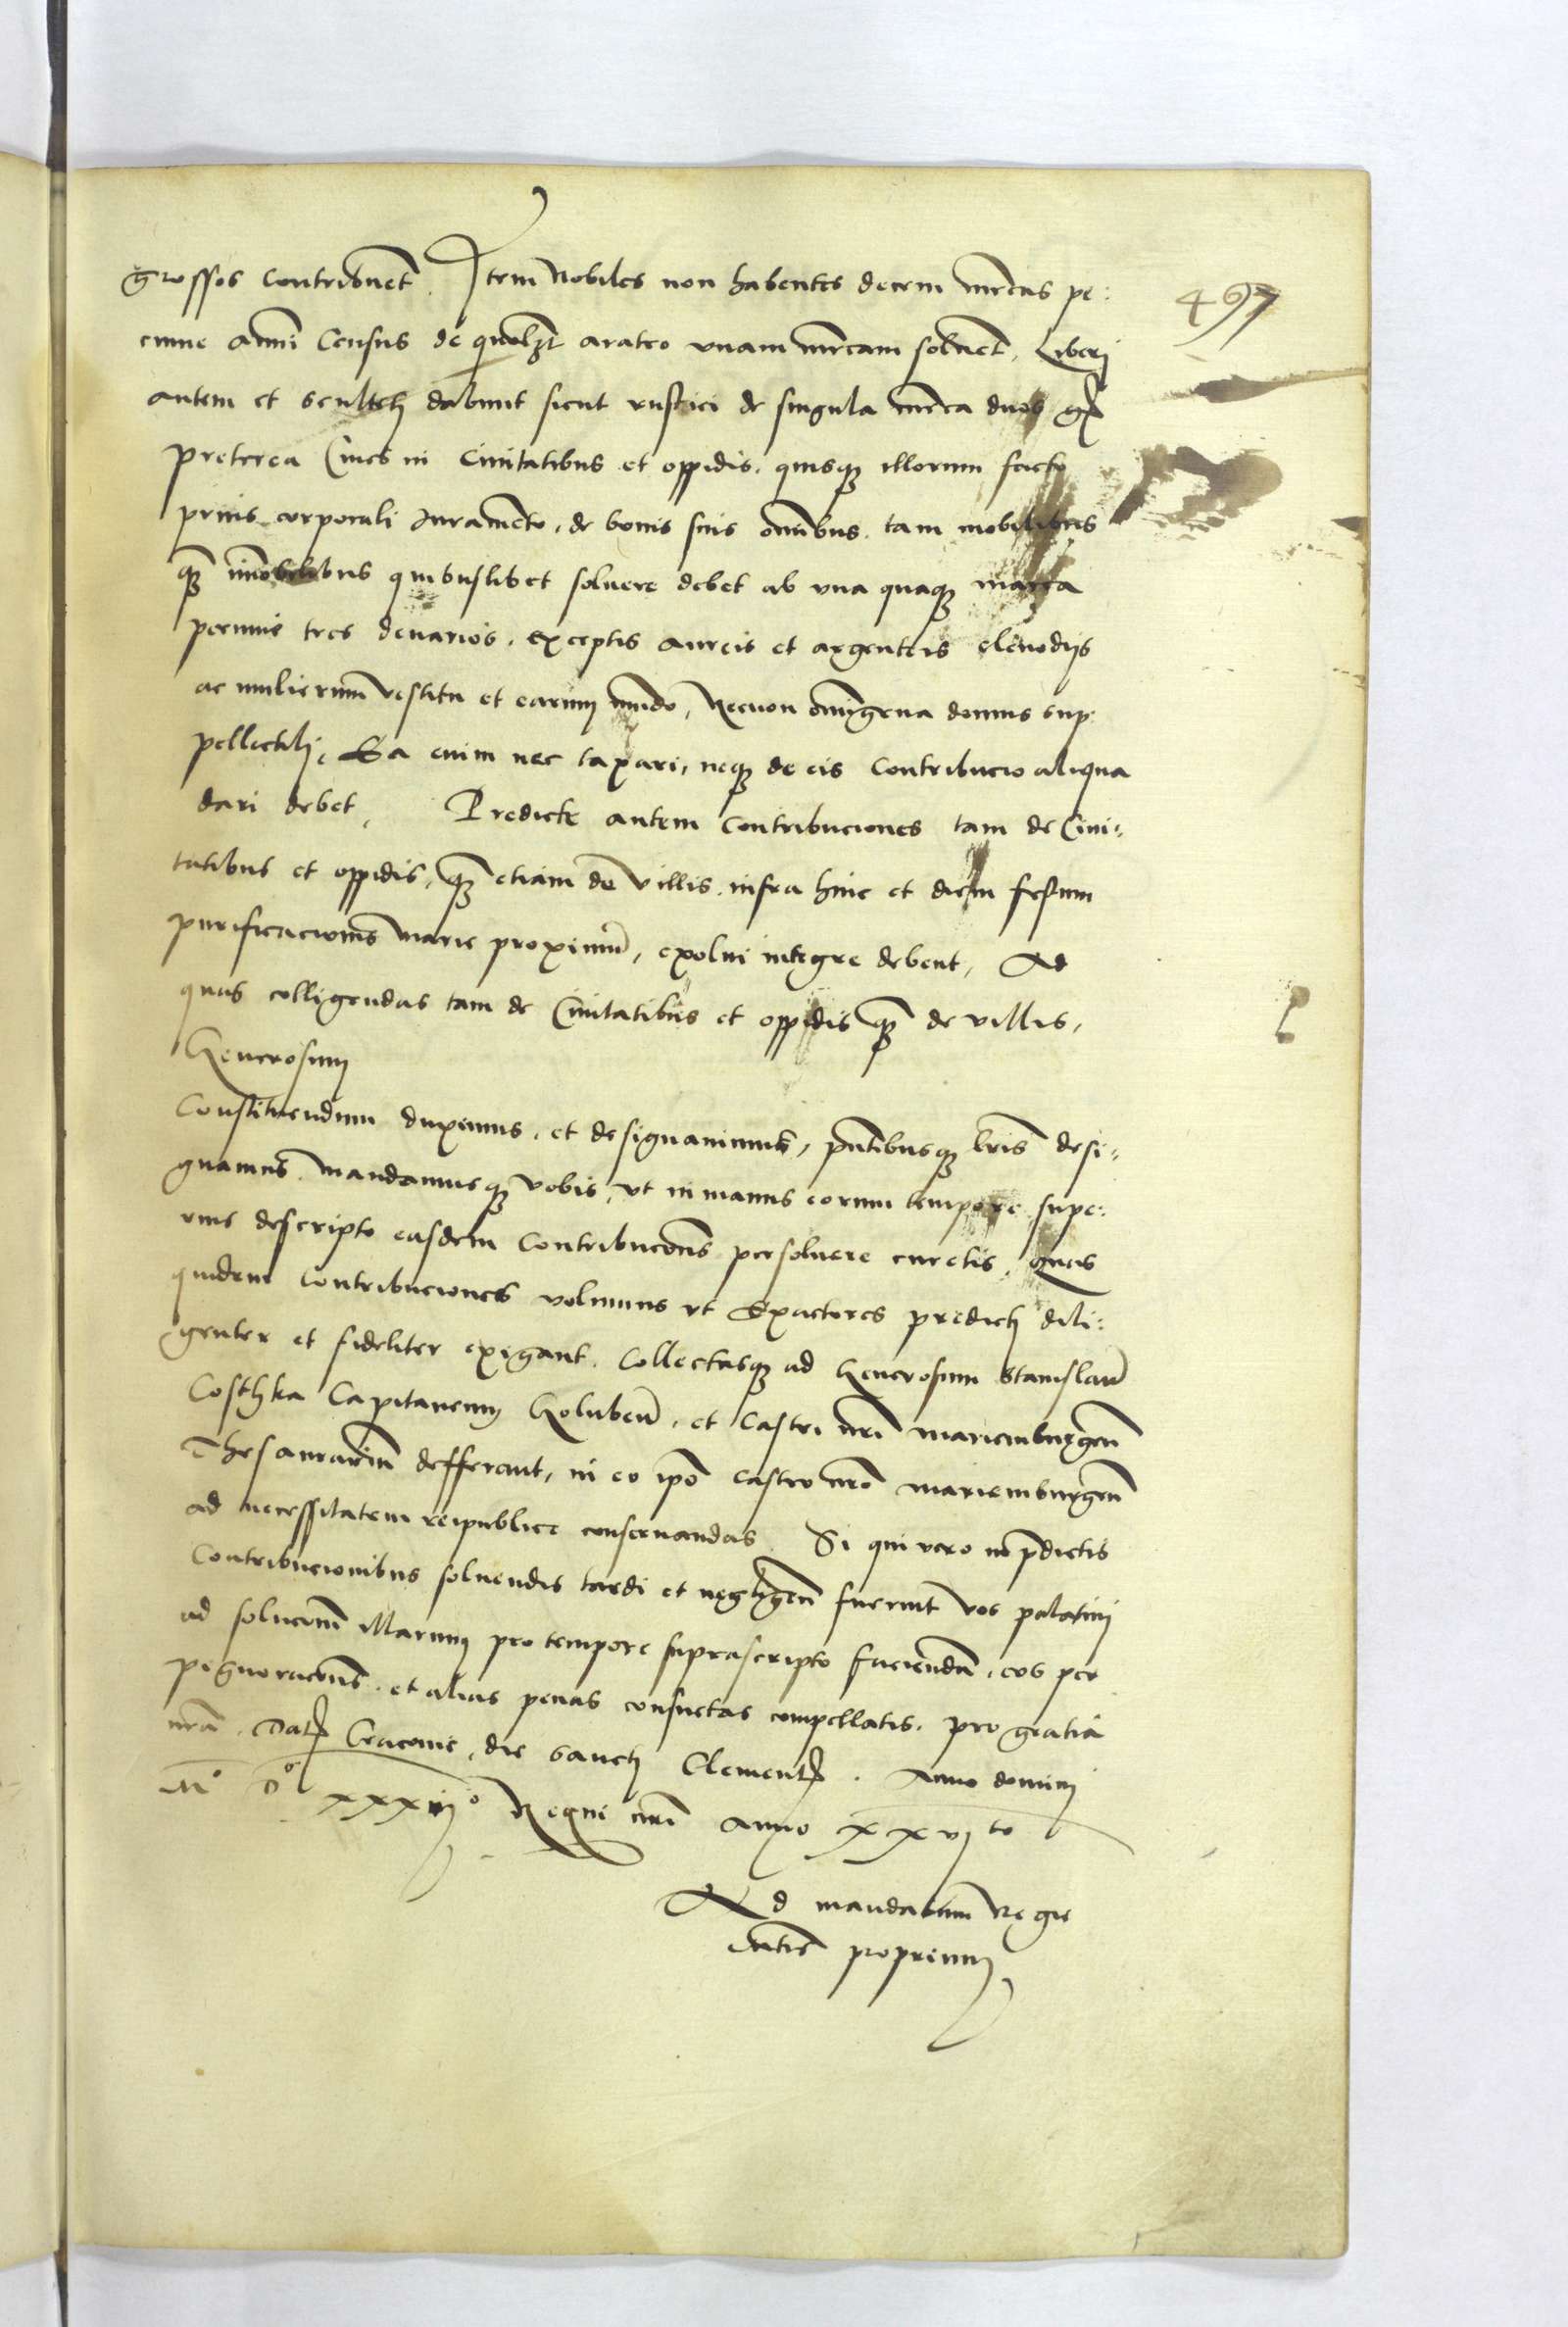 grossos contribuet. Item Nobiles non habentes decem mrcas pe:
497
cunie anni Census de quolzt aratro unam mrcam soluet, Liberi
autem et scultetj dabunt sicut rustici de singula mrca duos gr
preterea Cives in Civitatibus et oppidis, quisq illorum facto
prius corporali Juramento, de bonis suis omnibus tam mobilibus
q immobilibus quibuslibet soluere debet ab una quaq marca
pecunie tres denarios. exceptis aureis et argenteis clenodijs
ac mulierum vestitu et earum mundo, Necnon omnigena domus sup
pellectili, Ea enim nec taxari, neq de eis contribucio aliqua
dari debet. Predicte autem contribuciones tam de Civi:
tatibus et oppidis, q etiam de villis, infra hinc et diem festum
purificacionis marie proximu, exolui integre debent, Ad
quas colligendas tam de Civitatibus et oppidis q de villis,
Generosum
Constituendum duximus, et designavimus, pntibusq lris desi:
gnamus. mandamusq vobis, ut in manus eorum tempore supe:
rius descripto easdem contribucoes persoluere curetis, Quas
quidem contribuciones volumus ut Exactores predictj dili:
genter et fideliter exigant. Collectasq ad Generosum Stanislau
Costhka Capitaneum Golubeñ, et Castri nri mariemburgeñ
Thesaurariu defferant, in eo ipo castro nro mariemburgeñ
ad necessitatem reipublice conservandas. Si qui vero in pdictis
Contribucionibus soluendis tardi et negligeñ fuerint vos palatini
ad solucioem illarum pro tempore suprascripto faciendã, eos per
pignoracoes, et alias penas consuetas compellatis, pro gratia
nra. Dat Cracovie, die sanctj Clement. Anno domini
M° D° xxxij° Regni nri anno xxvjto
Ad mandatum Regie
Mtis proprium